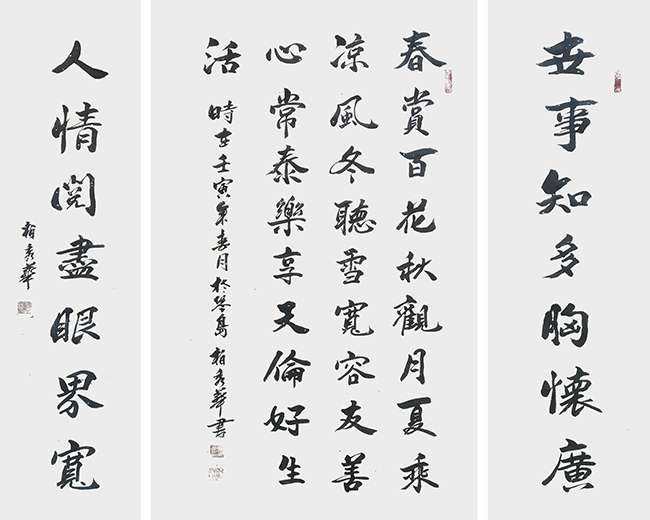 世事知多胸懷廣
春賞百花秋觀月夏乘
凉風冬聽雪寬容友善
心常泰樂享天倫好生
活
時在壬寅年春月於琴島 秀華書
人情閱盡眼界寬
秀華